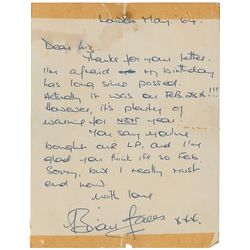 London May. 64.
Dear Liz
Thanks for your letter.
I'm afraid my Birthday
has long since passed.
Actually it was on Feb 28th!!!
However, it's plenty of
warning for NEXT year.
You say you've
bought our L.P. and I'm
glad you think it's so Fab.
Sorry, but I really must
end now
with love
Brian Jones
xxx.